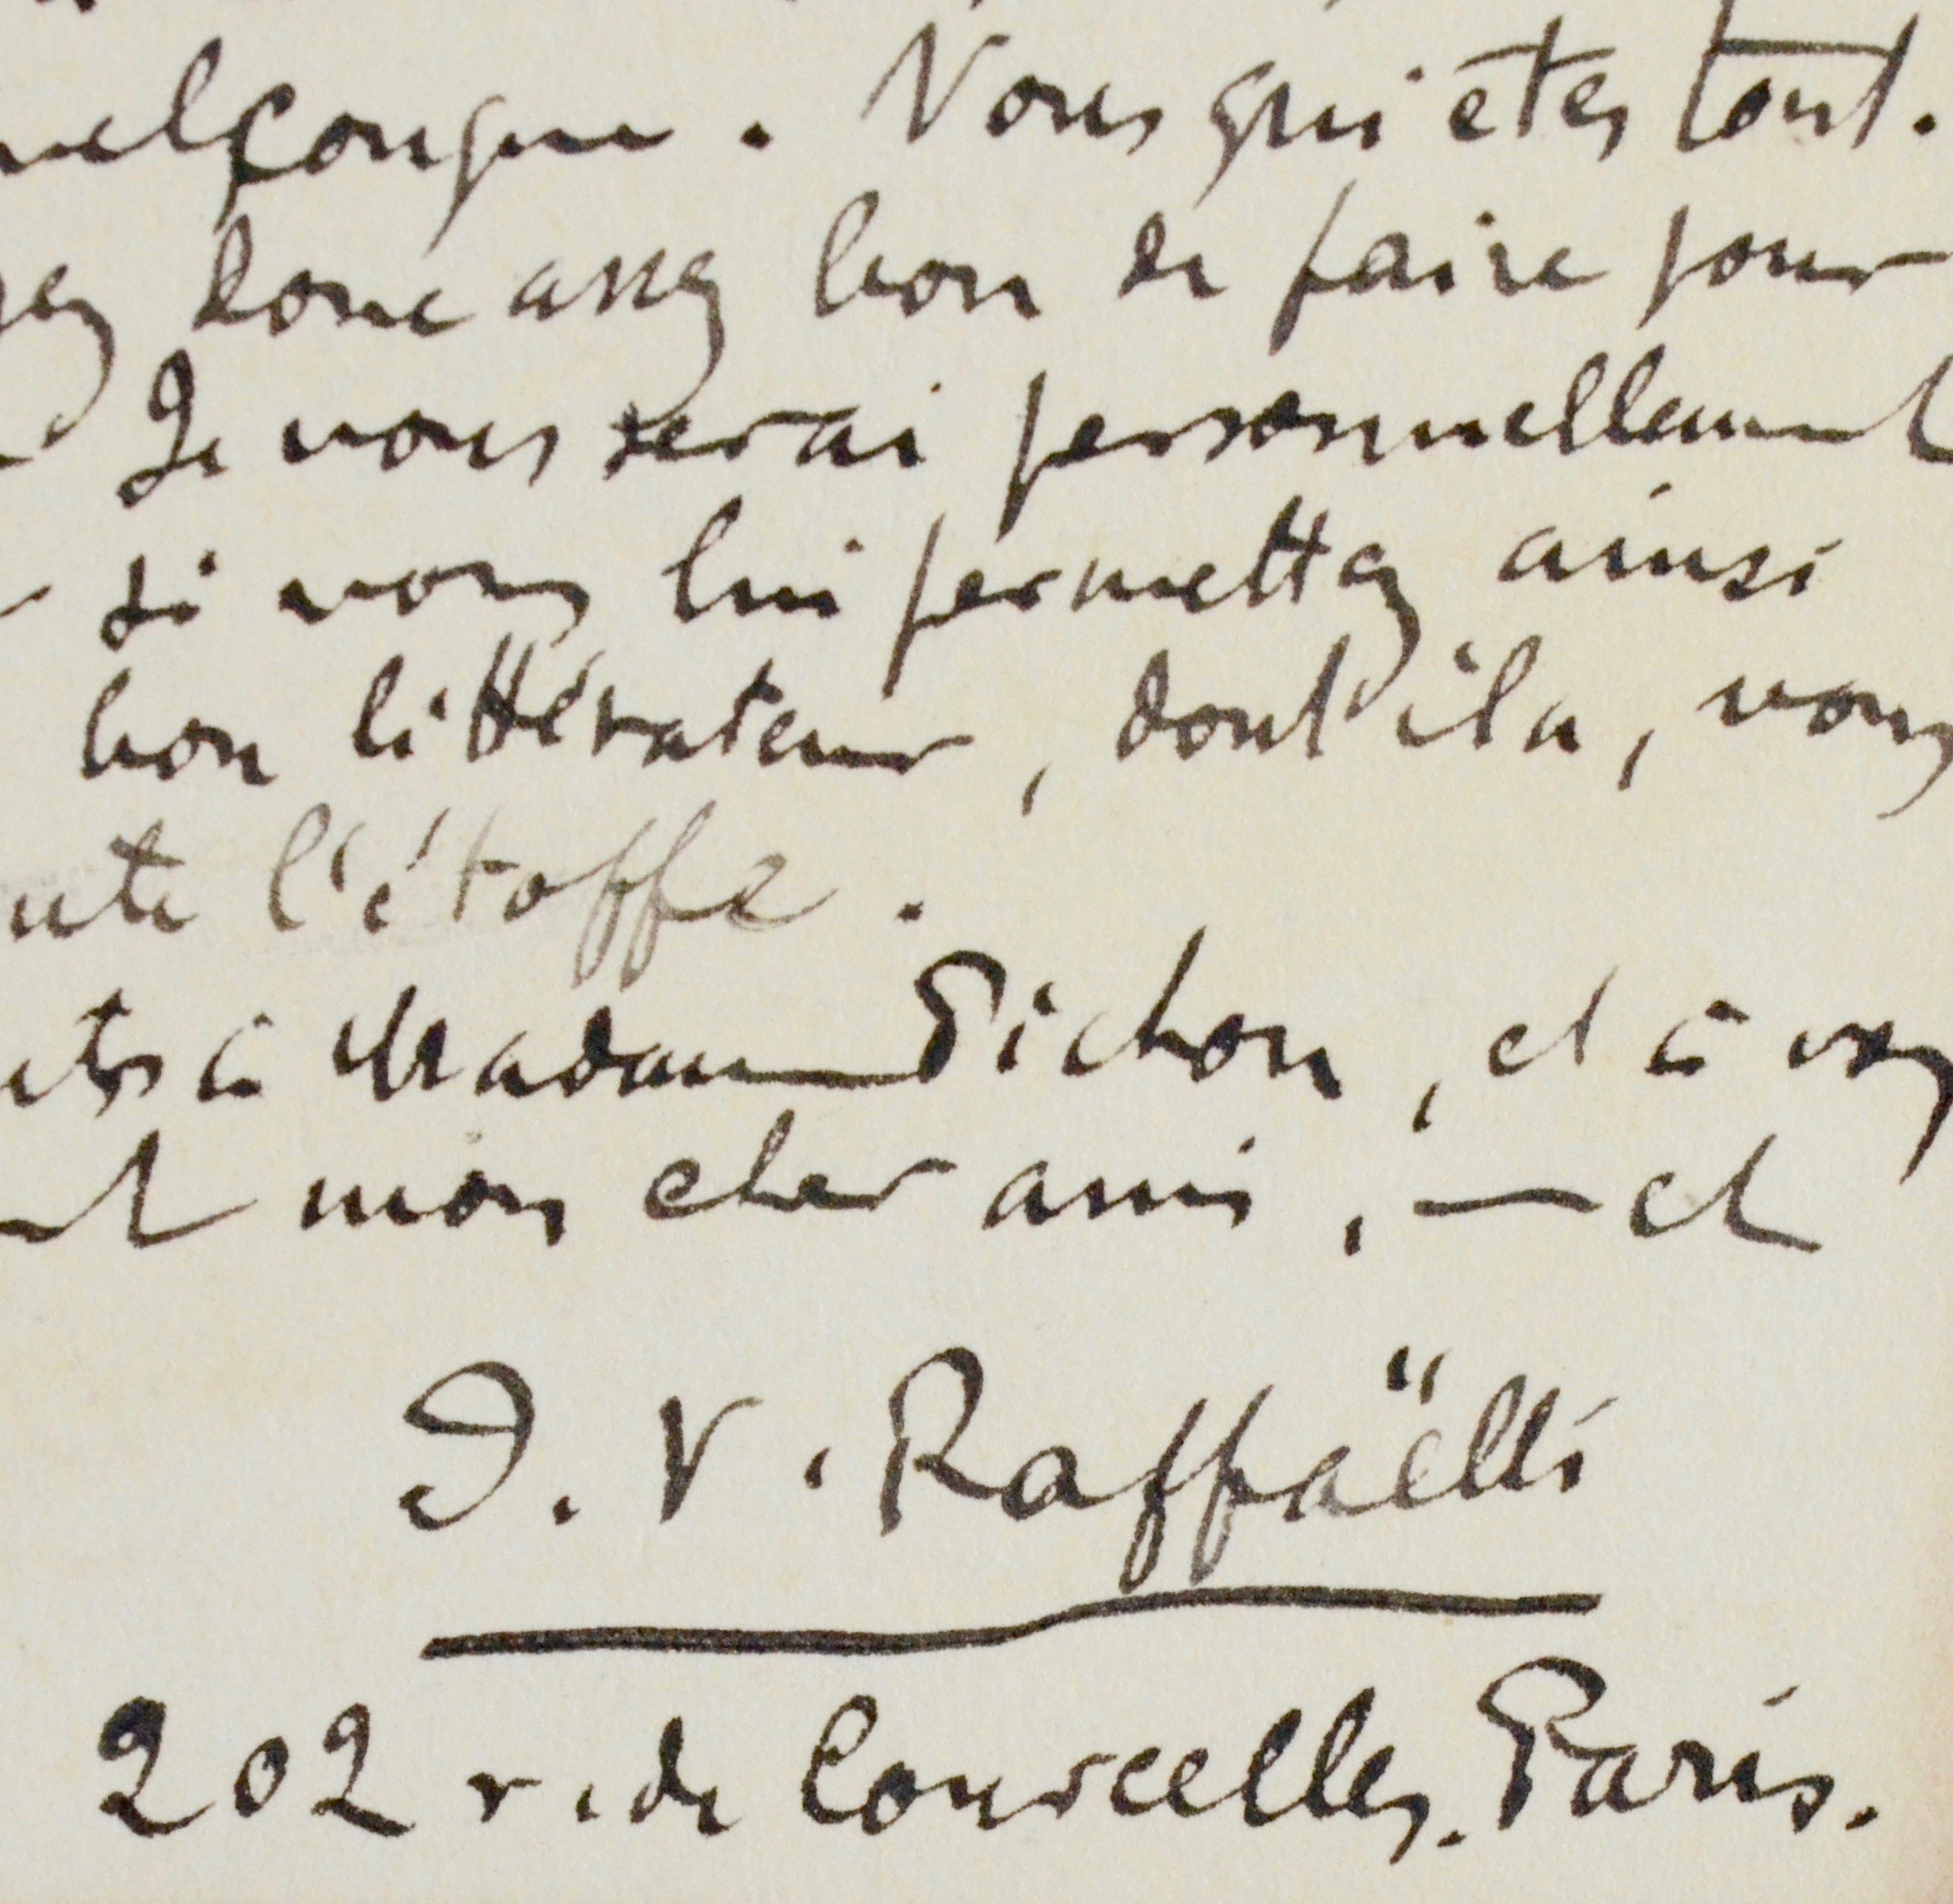 uelconque. Vous qui êtes tout.
yez donc assez bon de faire pour
Je vous serai personnellement
si vous lui permettez ainsi
bon littérateur, dont il a, vous
ute l'étoffe.
nts à Madame Pichon, et à vous
mon cher ami, — et
J. V. Raffaëlli
202 r. de Courcelles. Paris.